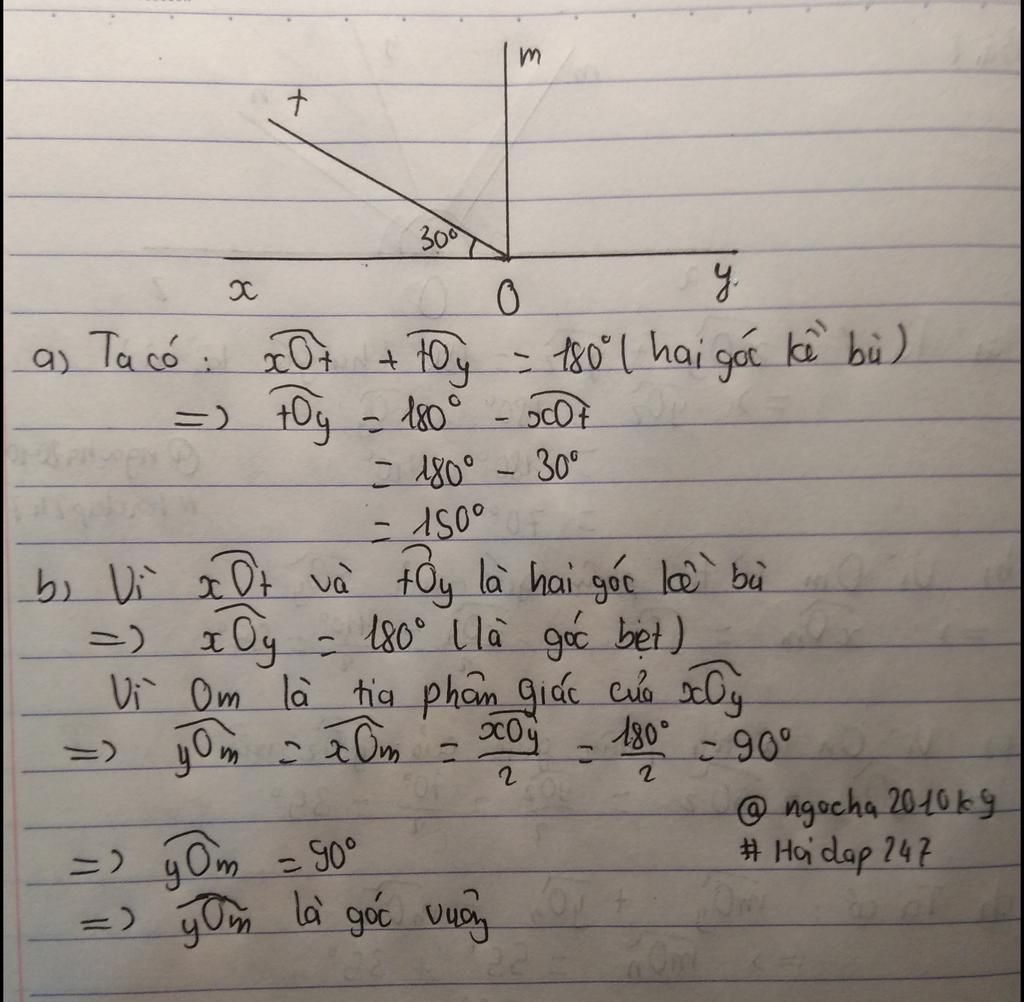 m
t
30°
x O y
a) Ta có: xOt + tOy = 180° (hai góc kề bù)
=> tOy = 180° - xOt
= 180° - 30°
= 150°
b) Vì xOt và tOy là hai góc kề bù
=> xOy = 180° (là góc bẹt)
Vì Om là tia phân giác của xOy
=> yOm = xOm = xOy/2 = 180°/2 = 90°
@ ngocha2010kg
=> yOm = 90°
# Hoidap247
=> yOm là góc vuông